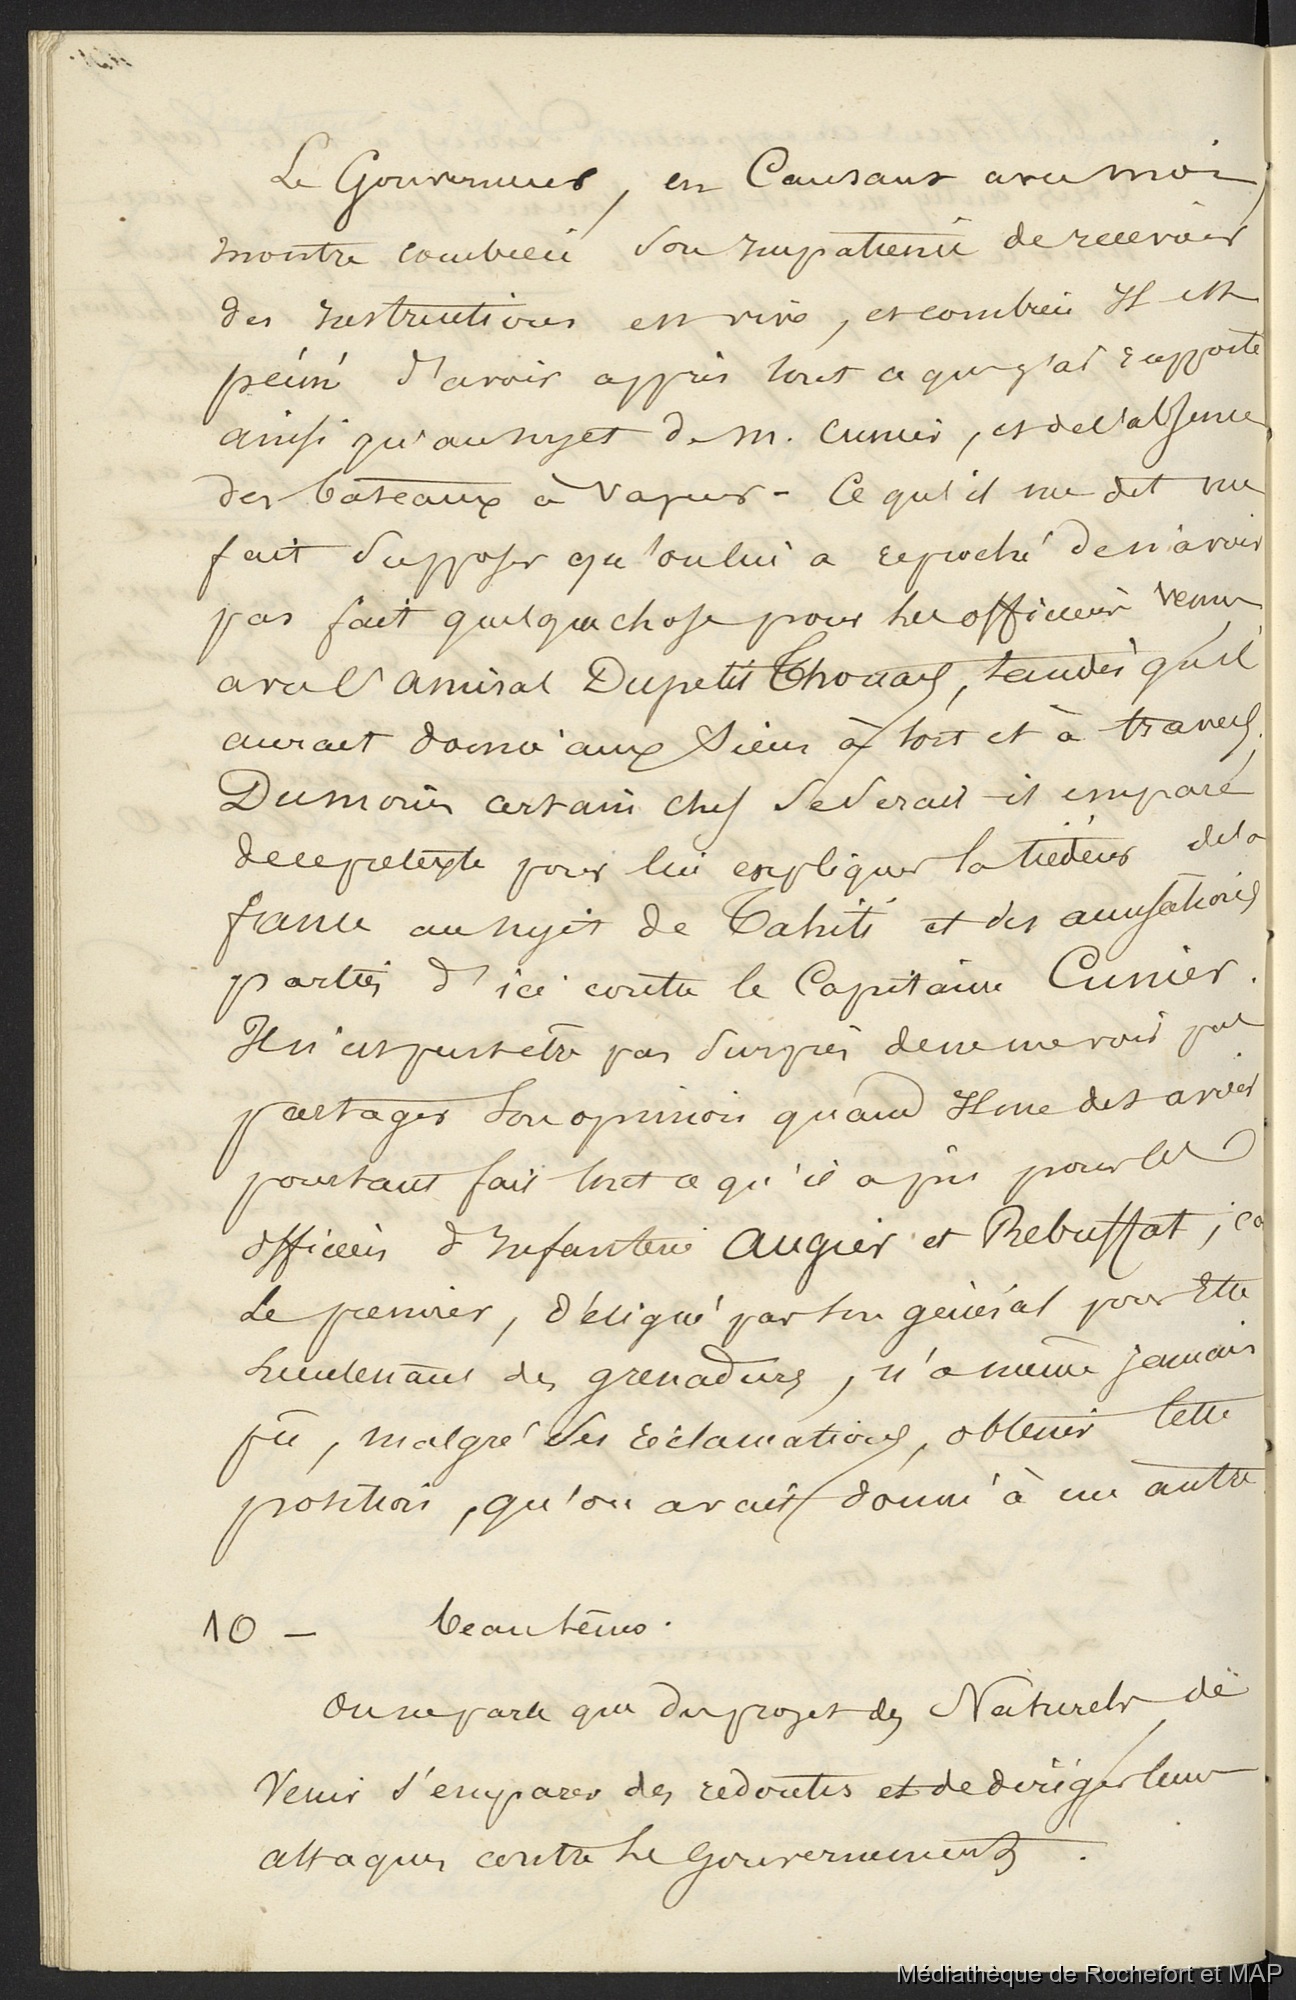 Le Gouverneur, en Causant avec moi,
montre combien son impatience de recevoir
des instructions est vive, et combien Il est
peiné d'avoir appris tout ce que j'ai rapporté
ainsi qu'au sujet de M. Cunier, et de l'absence
des bateaux à vapeur - Ce qu'il me dit me
fait supposer qu'on lui a reproché de n'avoir
pas fait quelque chose pour les officiers venus
avec l'amiral Dupetit Thouars, tandis qu'il
aurait donné aux siens à tort et à travers.
Du moins certain chef se serait-il emparé
de ce prétexte pour lui expliquer la tiédeur de la
france au sujet de Tahiti et des accusations
parties d'ici contre le Capitaine Cunier.
Il n'est peut être pas surpris de ne me voir pas
partager son opinion quand Il me dit avoir
pourtant fait tout ce qu'il a pu pour les
officiers d'Infanterie Augier et Rebuffat; car
Le premier, désigné par son général pour être
lieutenant des grenadiers, n'a même jamais
pû, malgré ses réclamations, obtenir cette
position, qu'on avait donné à un autre
10 - beau tems.
On ne parle que du projet des Naturels de
venir s'emparer des redoutes et de diriger leurs
attaques contre le Gouvernement.
Médiathèque de Rochefort et MAP